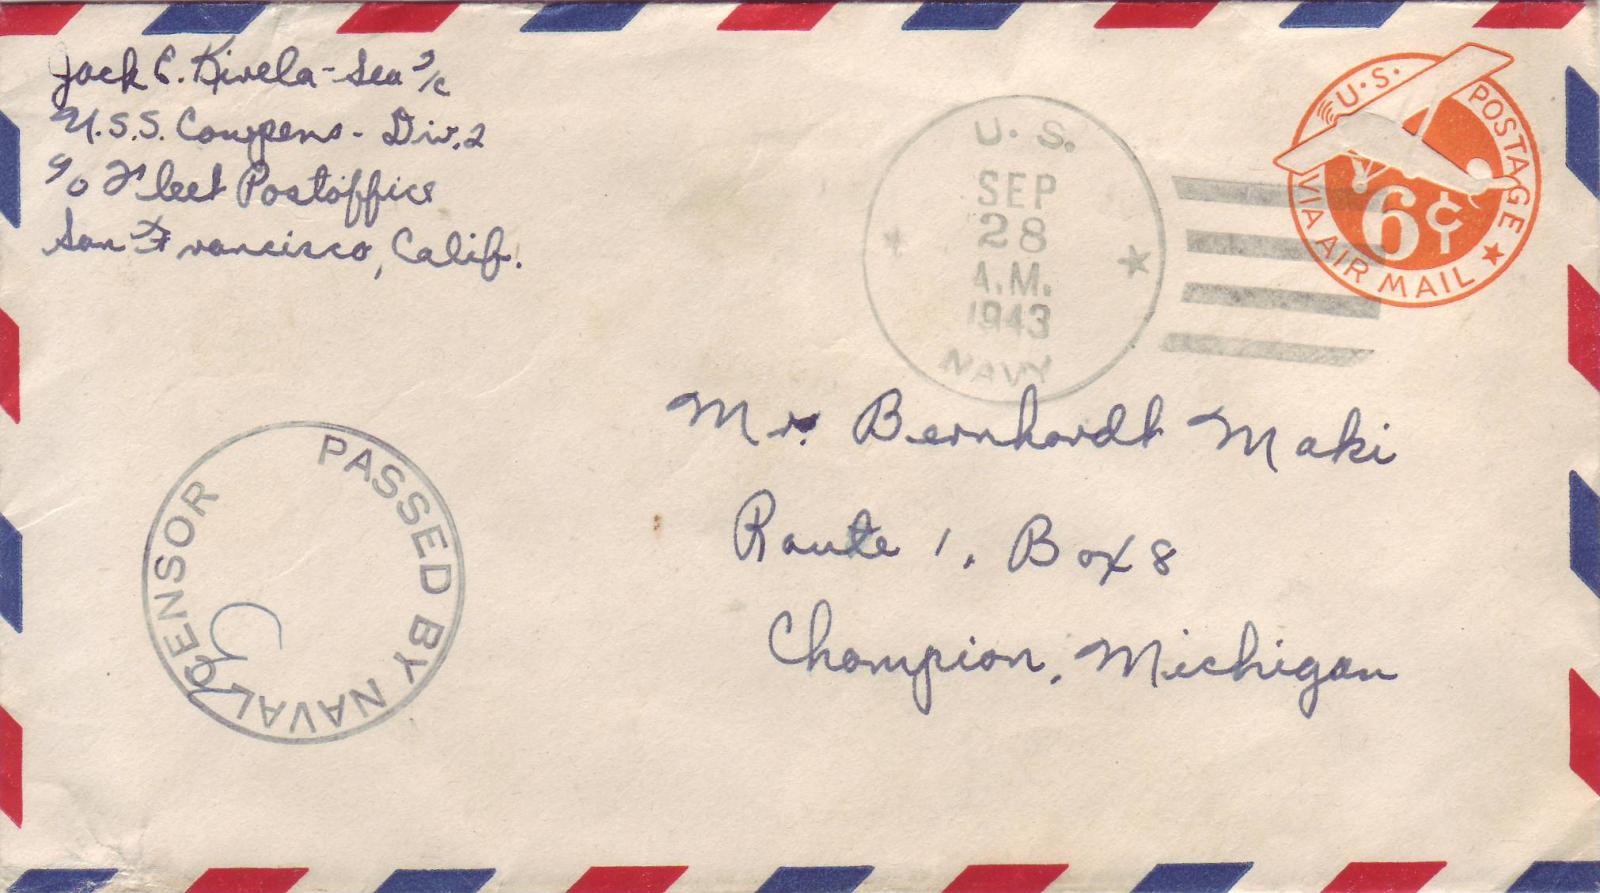 Jack E. Kivela - Sea 2/c
U.S.S. Cowpens - Div. 2
c/o Fleet Postoffice
San Francisco, Calif.
U. S.
SEP
28
A.M.
1943
NAVY
U.S. POSTAGE
6¢
VIA AIR MAIL
Mr. Bernhardt Maki
Route 1, Box 8
Champion, Michigan
PASSED BY NAVAL CENSOR